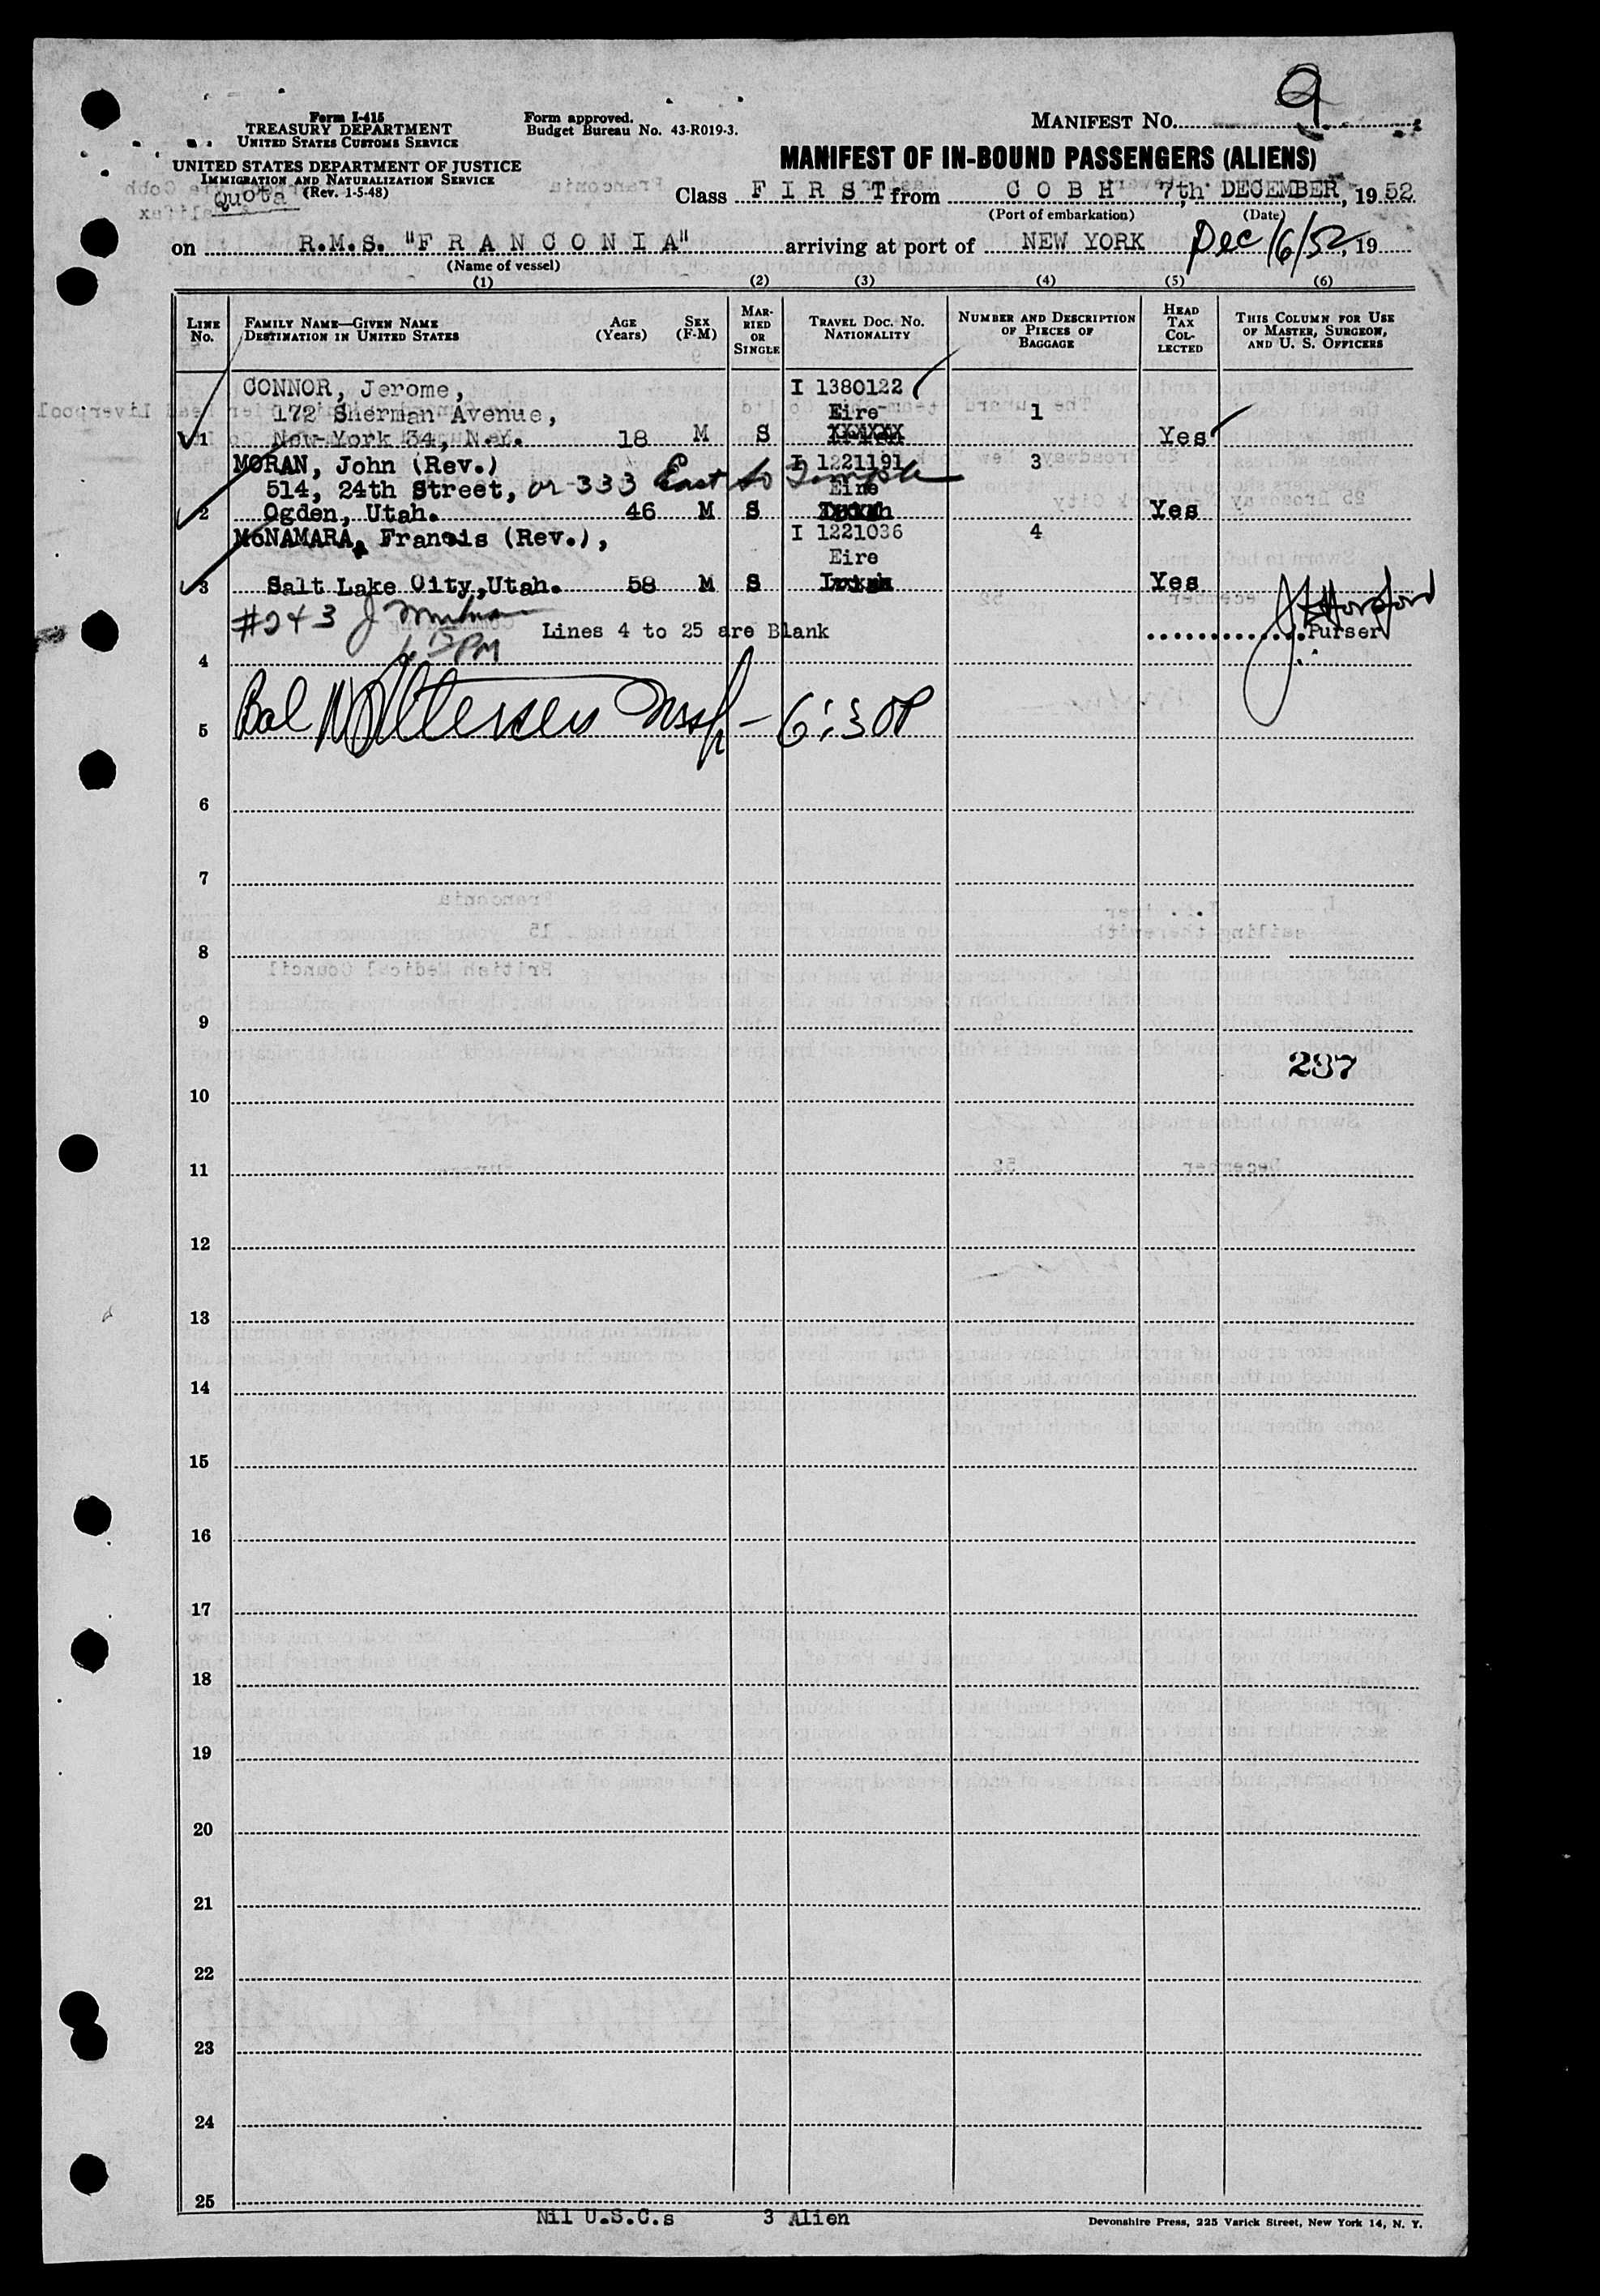 9
Form I-415
TREASURY DEPARTMENT
UNITED STATES CUSTOMS SERVICE
UNITED STATES DEPARTMENT OF JUSTICE
IMMIGRATION AND NATURALIZATION SERVICE
(Rev. 1-5-48)
Quota
Form approved.
Budget Bureau No. 43-R019-3.
MANIFEST No.
MANIFEST OF IN-BOUND PASSENGERS (ALIENS)
Class F I R S T from C O B H 7th DECEMBER, 19 52
(Port of embarkation) (Date)
on R.M.S. "F R A N C O N I A" arriving at port of NEW YORK Dec 16/52, 19
(Name of vessel)
(1) (2) (3) (4) (5) (6)
LINE No. FAMILY NAME—GIVEN NAME DESTINATION IN UNITED STATES AGE (Years) SEX (F-M) MARRIED OR SINGLE TRAVEL DOC. No. NATIONALITY NUMBER AND DESCRIPTION OF PIECES OF BAGGAGE HEAD TAX COLLECTED THIS COLUMN FOR USE OF MASTER, SURGEON, AND U. S. OFFICERS
CONNOR, Jerome, I 1380122
172 Sherman Avenue, Eire 1
1 New York 34, N.Y. 18 M S Yes
MORAN, John (Rev.) I 1221191 3
514, 24th Street, or 333 East So Temple Eire
2 Ogden, Utah. 46 M S Yes
McNAMARA, Francis (Rev.), I 1221036 4
Eire
3 Salt Lake City, Utah. 58 M S Yes
#243
Lines 4 to 25 are Blank
Purser
4
5 Bal Insp - 6:30P
6
7
8
9
297
10
11
12
13
14
15
16
17
18
19
20
21
22
23
24
25
Nil U.S.C.s 3 Alien
Devonshire Press, 225 Varick Street, New York 14, N. Y.